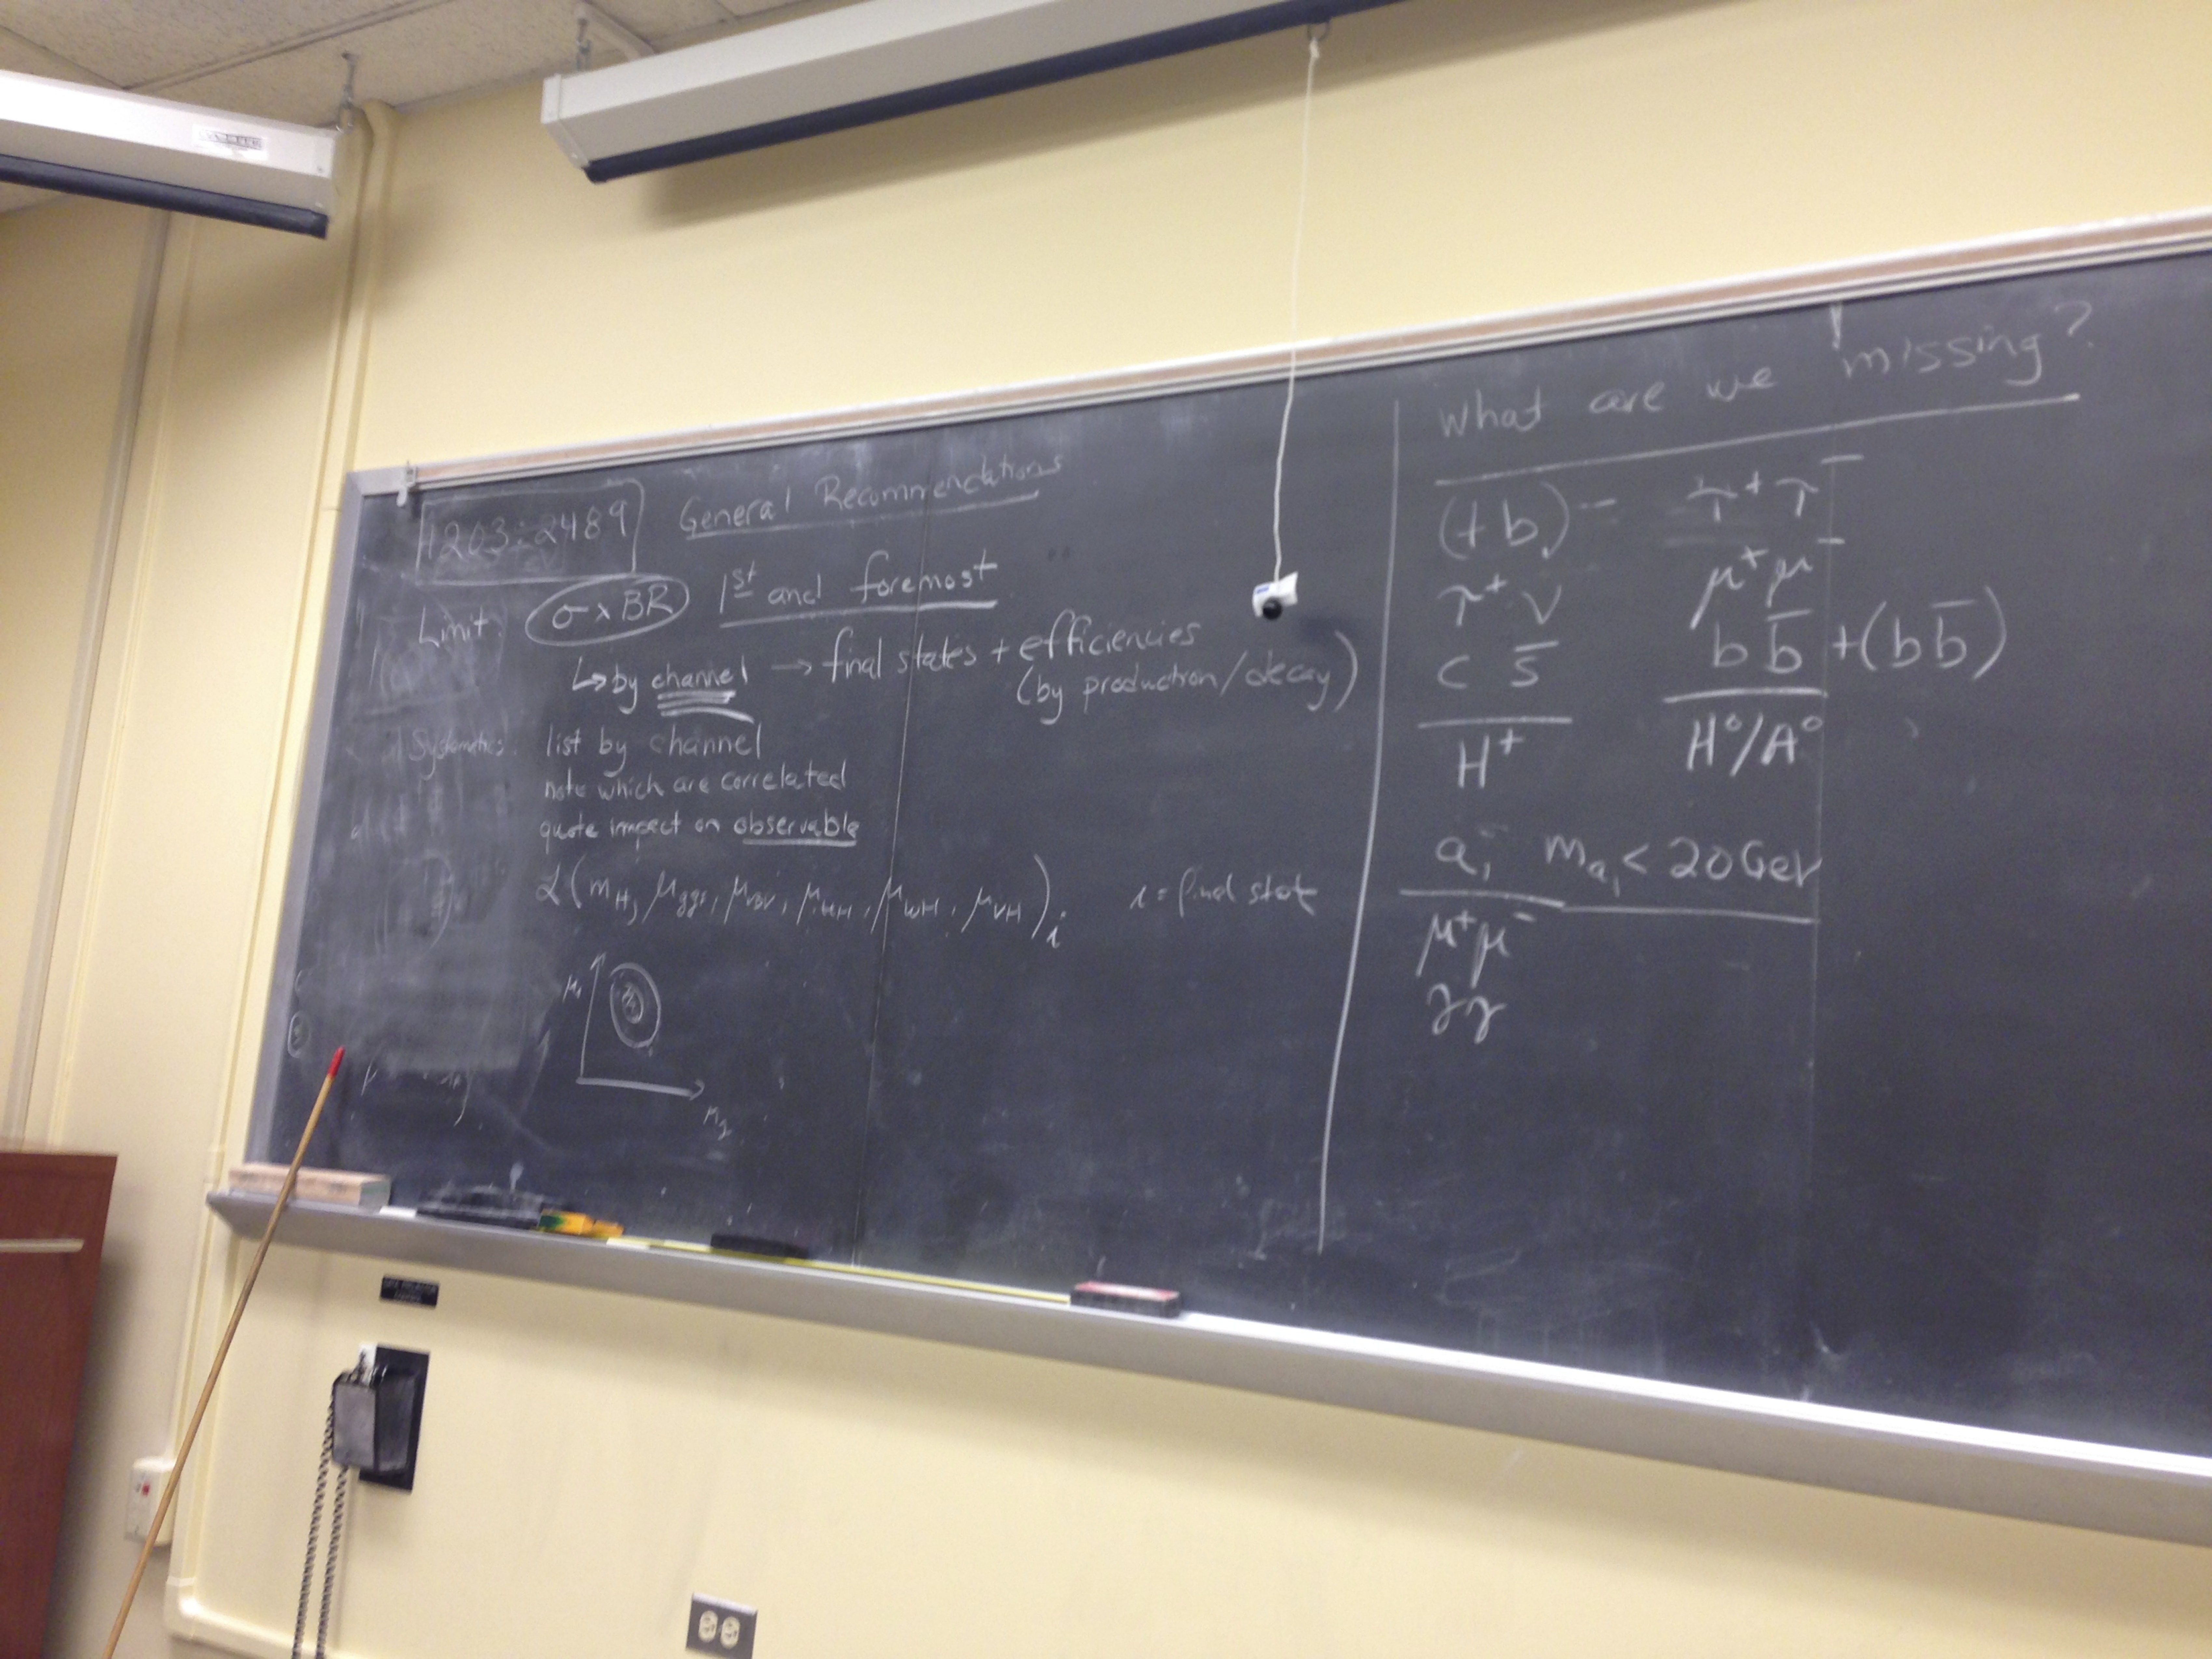 1203.2489
General Recommendations
Limit: σ x BR 1st and foremost
↳ by channel → final states + efficiencies
(by production/decay)
Systematics: list by channel
note which are correlated
quote impact on observable
ℒ(m_H, μ_ggF, μ_VBF, μ_ttH, μ_WH, μ_VH)_i i = final state
μ_1
μ_2
What are we missing?
(tb) τ⁺τ⁻
τ⁺ν μ⁺μ⁻
c s̄ b b̄ + (b b̄)
H⁺ H⁰/A⁰
a₁ m_a₁ < 20 GeV
μ⁺μ⁻
γγ